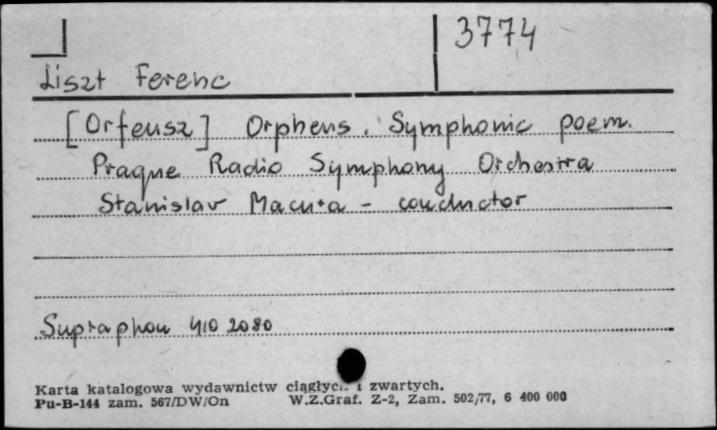 3774
Liszt Ferenc
[Orfeusz] Orpheus. Symphonic poem.
Prague Radio Symphony Orchestra
Stanislav Macura - conductor
Supraphon 410 2080
Karta katalogowa wydawnictw ciągłych i zwartych.
Pu-B-144 zam. 567/DW/On W.Z.Graf. Z-2, Zam. 502/77, 6 400 000